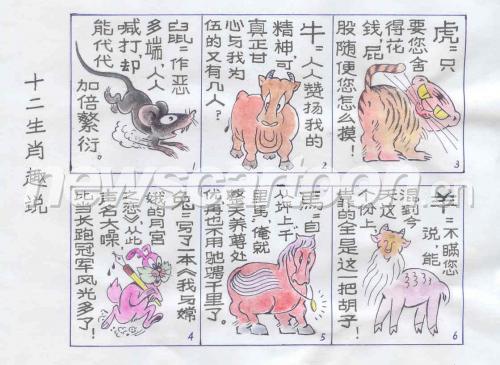 十二生肖趣说
鼠=作恶
多端,人人
喊打,却
能代代
加倍繁衍。
1
牛=人人赞扬我的
精神,可
真正甘
心与我为
伍的又有几人?
2
虎=只
要您舍
得花
钱,屁
股随便您怎么摸!
3
兔=写了一本《我与嫦
娥的月宫
之恋》从此
声名大噪,
比当长跑冠军风光多了!
4
馬=自
从评上千
里馬,俺就
整天养尊处
优再也不用驰骋千里了。
5
羊=不瞒您
说,能
混到今
天这
个份上
靠的全是这一把胡子!
6
newscartoon.cn